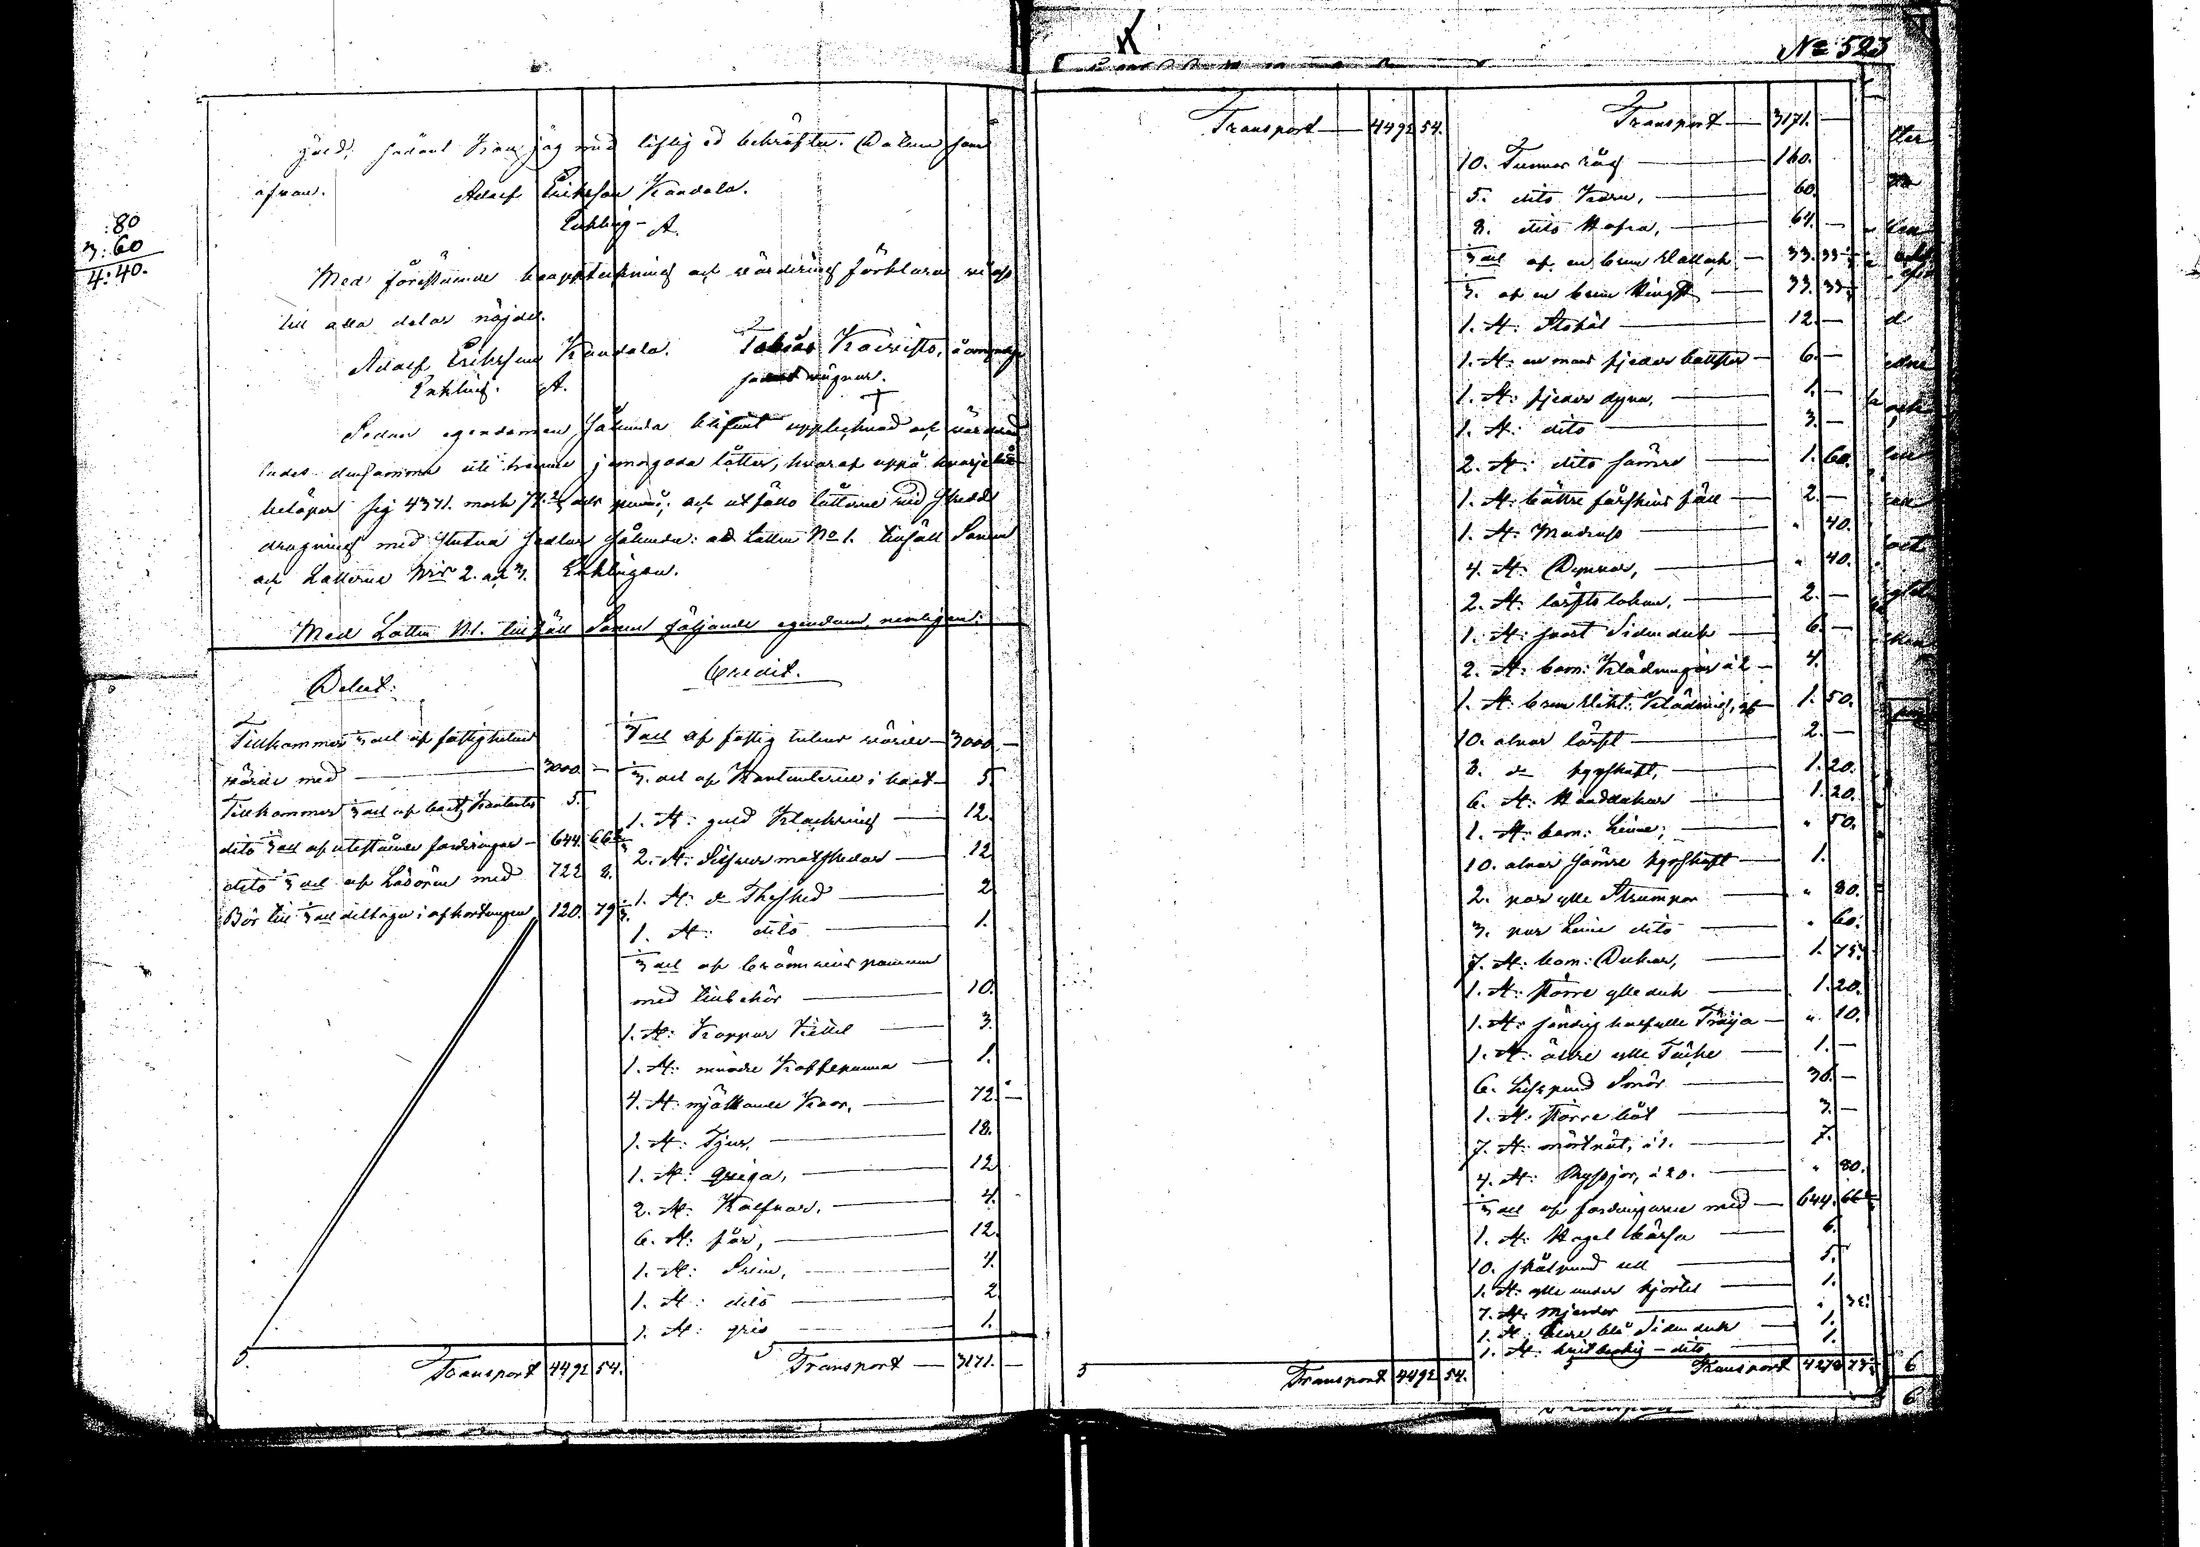 :80
3:60
4:40.
gäld, sådant kan jag med liflig ed bekräfta. Datum som
ofvan. Adolf Eriksson Kandola.
Enkling. A.
Med förestående bouppteckning och värdering förklara vi oss
till alla delar nöjde.
Adolf Eriksson Kandola. Tobias
Enkling. A.
Sedan egendomen sålunda blifvit upptecknad och värderad
lades densamma uti trenne jemngoda lotter, hvaraf uppå hvarje lott
belöper sig 4371. mark 74 2/3 dels penni; och utföllo lotterne vid skedd
dragning med slutna sedlar sålunda: att Lotten No 1. tillföll Sonen
och Lotterne N:ris 2. och 3. Enklingen.
Med Lotten N1. tillföll Sonen följande egendom, nemligen:
Debet:
Tillkommer 1/3 del af fastighetens
värde med 3000. —
Tillkommer 1/3 del af boets Kontanter 5.
dito 1/3 del af utestående fordringar 644. 66 2/3
dito 1/3 del af Lösören med 722 8.
Bör till 1/3 del deltaga i afkortningen 120. 79 1/3.
Transport 4492 54.
Credit.
1/3 del af fastighetens värde 3000 —
1/3 del af Kontanterne i boet 5.
1. st: guld Klackring 12.
2. st: Silfver matskedar 12
1. st: d:o Thesked 2
1. st: dito 1.
1/3 del af brännvins pannan
med tillbehör 10.
1. st: Koppar Kittel 3.
1. st: mindre Kaffepanna 1.
4. st: mjölkande Kor, 72. —
1. st: Tjur, 18.
1. st: qviga, 12
2. st: Kalfvar, 4.
6. st: får, 12.
1. st: Svin, 4.
1. st: dito 2
1. st: gris 1.
Transport 3171. —
No 523
Transport 4492 54.
Transport 4492 54.
Transport 3171. —
10. Tunnor råg 160.
5. dito Korn, 60.
8. dito Hafra, 64. —
1/3 del af en brun Vallack 33. 33 1/3
1/3 af en brun Hingst 33. 33 1/3
1. st: Stobål 12. —
1. st: en mans fjeder bolster 6. —
1. st: fjeder dyna, 1. —
1. st: dito 3. —
2. st: dito sämre 1. 60.
1. st: bättre fårskins fäll 2. —
1. st: Madrass " 40.
4. st: Dynvar, " 40.
2. st: lärfts lakan, 2. —
1. st: svart Sidenduk 6. —
2. st: bom: Klädningar à 2 4.
1. st: brun Klädning, 1. 50.
10. alnar lärft 2. —
8. d:o hyfskaft, 1. 20.
6. st: Handdukar 1. 20.
1. st: bom: Linne; " 50.
10. alnar sämre hyfskaft 1.
2. par ylle Strumpor " 80.
3. par Linne dito " 60.
7. st: bom: Dukar, 1. 75.
1. st: större ylleduk 1. 20.
1. st: randig halfylle Tröja " 10.
1. st: äldre ylle Täcke 1. —
6. Lispund Smör 36. —
1. st: större båt 3. —
7. st: mörtnät, à 1. 7.
4. st: Ryssjor, à 20. " 80.
1/3 del af fordringarne med 644. 66 2/3
1. st: Hagel bössa 6.
10. skålpund ull 5.
1. st: ylle under kjortel 1.
7. st: Mjerdor " 35.
1. st: blå Sidenduk 1.
1. st: hvitbrokig dito 1.
Transport 4278 73